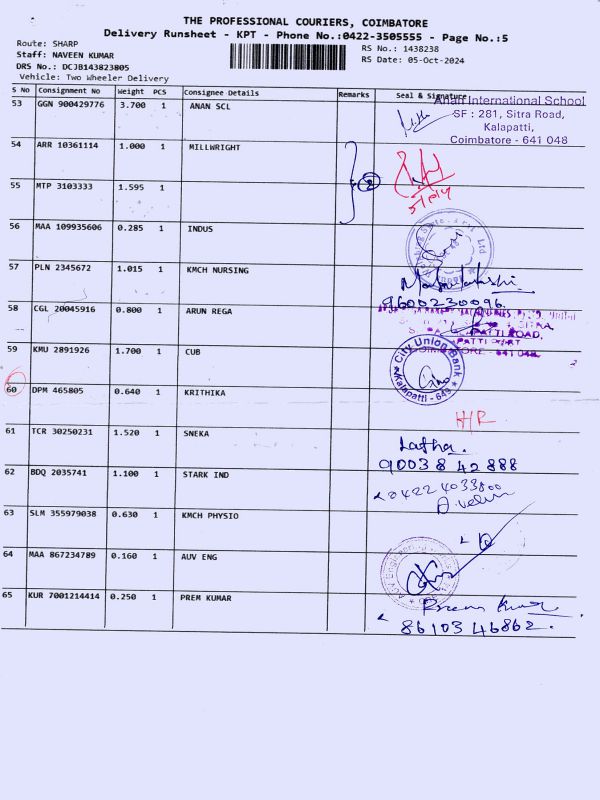 THE PROFESSIONAL COURIERS, COIMBATORE
Delivery Runsheet - KPT - Phone No.:0422-3505555 - Page No.:5
Route: SHARP
Staff: NAVEEN KUMAR
DRS No.: DCJB143823805
Vehicle: Two Wheeler Delivery
RS No.: 1438238
RS Date: 05-Oct-2024
S No Consignment No Weight PCS Consignee Details Remarks Seal & Signature
53 GGN 900429776 3.700 1 ANAN SCL
Anan International School
SF : 281, Sitra Road,
Kalapatti,
Coimbatore - 641 048
54 ARR 10361114 1.000 1 MILLWRIGHT
2
55 MTP 3103333 1.595 1
56 MAA 109935606 0.285 1 INDUS
57 PLN 2345672 1.015 1 KMCH NURSING
9600230096.
58 CGL 20045916 0.800 1 ARUN REGA
59 KMU 2891926 1.700 1 CUB
City Union Bank
Kalapatti - 649
60 DPM 465805 0.640 1 KRITHIKA
H/R
61 TCR 30250231 1.520 1 SNEKA
Latha.
90038 42 888
62 BDQ 2035741 1.100 1 STARK IND
0422 4033800
63 SLM 355979038 0.630 1 KMCH PHYSIO
64 MAA 867234789 0.160 1 AUV ENG
65 KUR 7001214414 0.250 1 PREM KUMAR
Prem Kumar
86103 46862.